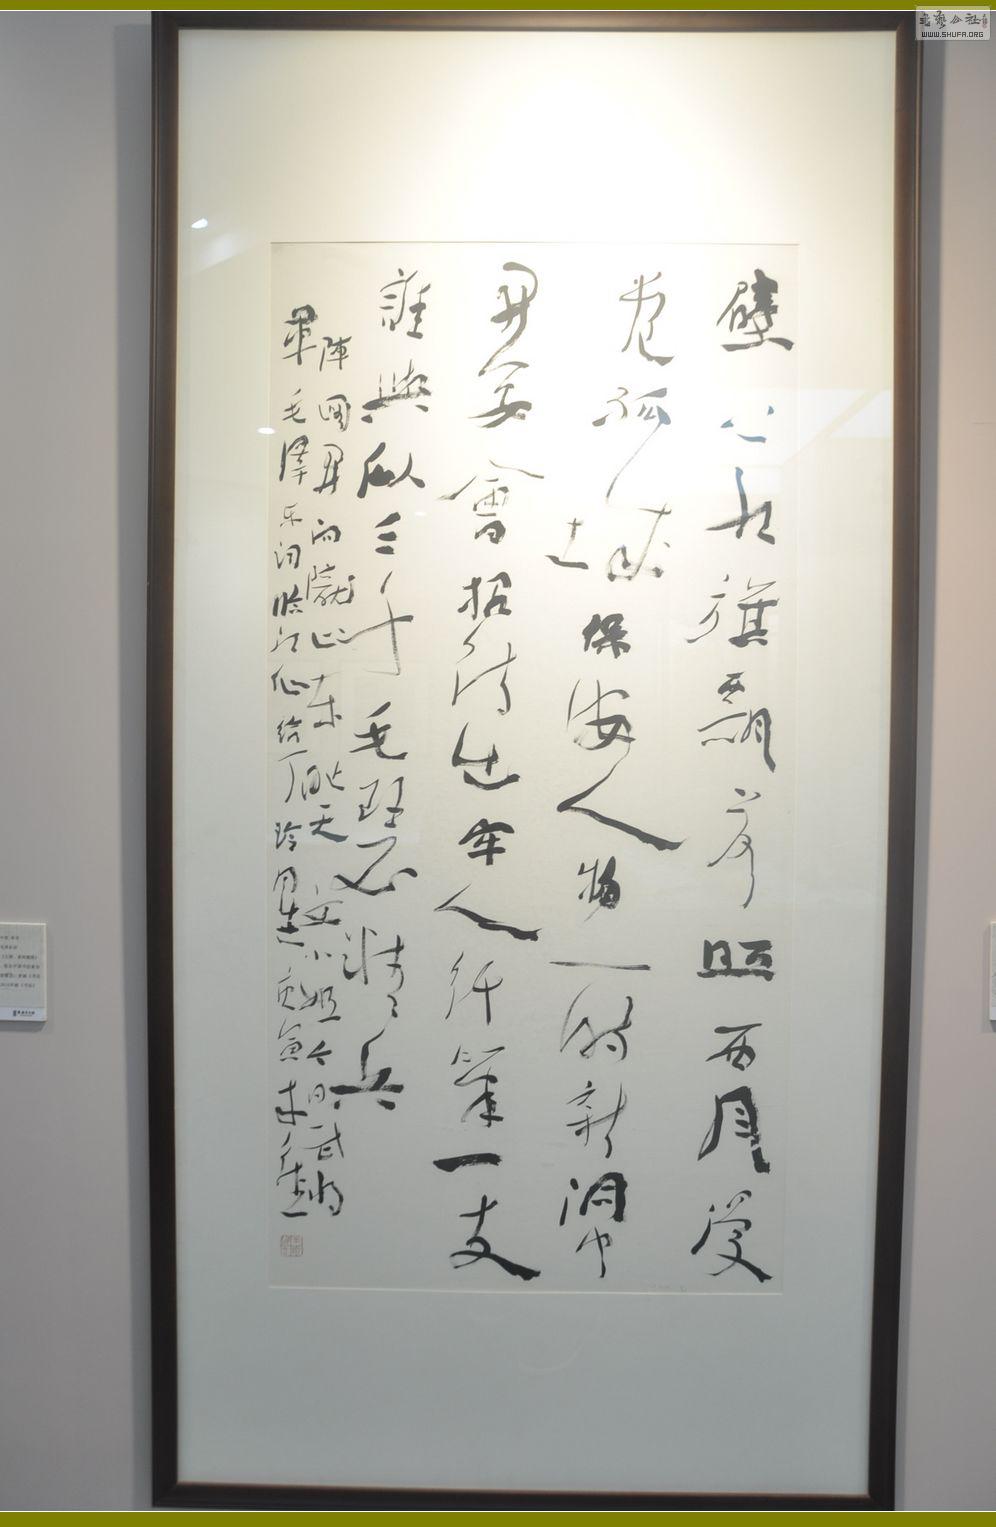 壁上红旗飘落照西风漫
卷孤城保安人物一时新洞中
开宴会招待出牢人纤笔一支
谁與似三千毛瑟精兵
阵图开向陇山东昨天文小姐今日武将
军毛泽东词临江仙给丁玲同志
书艺公社
WWW.SHUFA.ORG